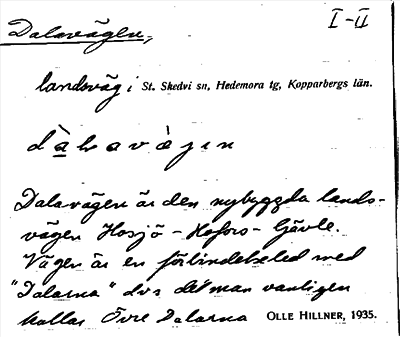 Dalavägen, I-II
landsväg i St. Skedvi sn, Hedemora tg, Kopparbergs län.
dàlavàjɪn
Dalavägen är den nybyggda lands-
vägen Hosjö - Hofors - Gävle.
Vägen är en förbindelseled med
"Dalarna" dvs det man vanligen
kallar Övre Dalarna OLLE HILLNER, 1935.